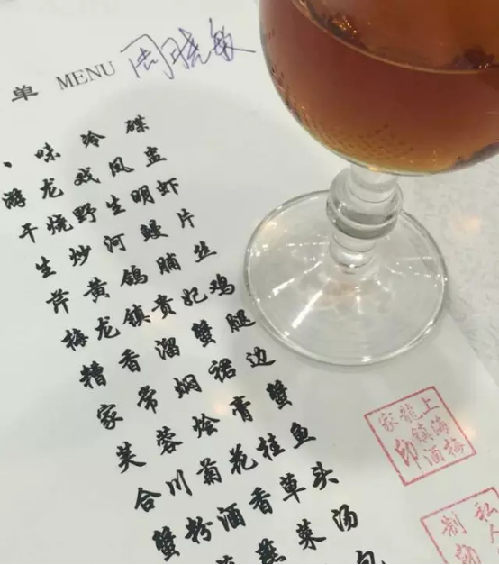 单 MENU 周晓敏
味冷碟
游龙戏凤盅
干烧野生明虾
生炒河鳗片
芹黄鸽脯丝
梅龙镇贵妃鸡
糟香溜蟹腿
家常焖裙边
芙蓉烩膏蟹
合川菊花桂鱼
蟹粉酒香草头
燕菜汤
上海梅
龍镇酒
家印
私人
制